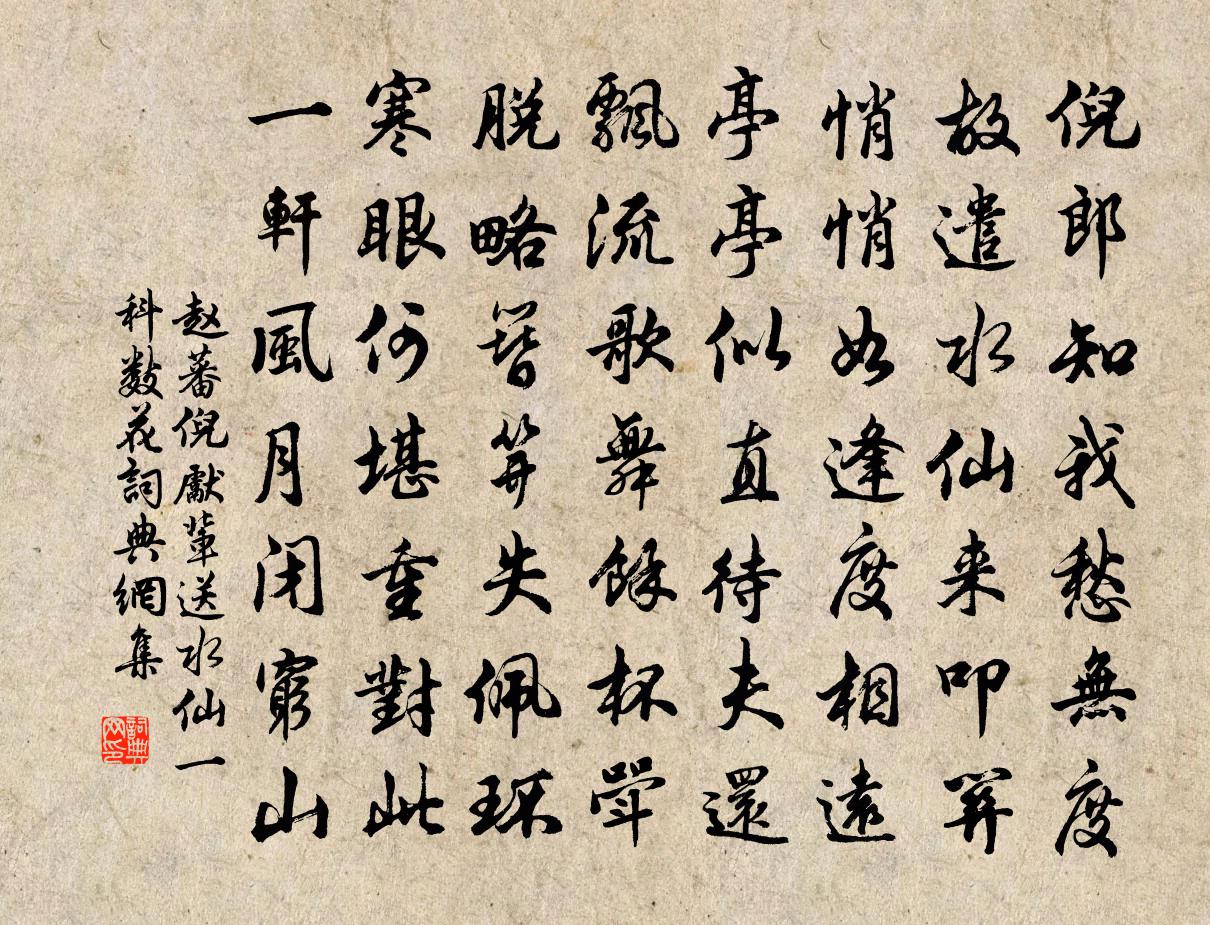 倪郎知我愁無度
故遣水仙来叩關
悄悄如逢度相遠
亭亭似直待夫還
飄流歌舞餘杯斝
脱略簪笄失佩环
寒眼何堪重對此
一軒風月闭窮山
赵蕃倪獻輩送水仙一
科数花詞典網集
詞典网印